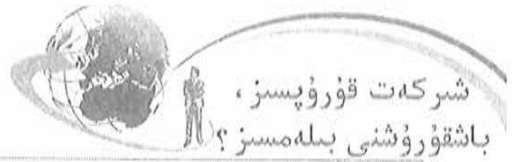 شىركەت قۇرۇپسىز ،
باشقۇرۇشنى بىلەمسىز ؟